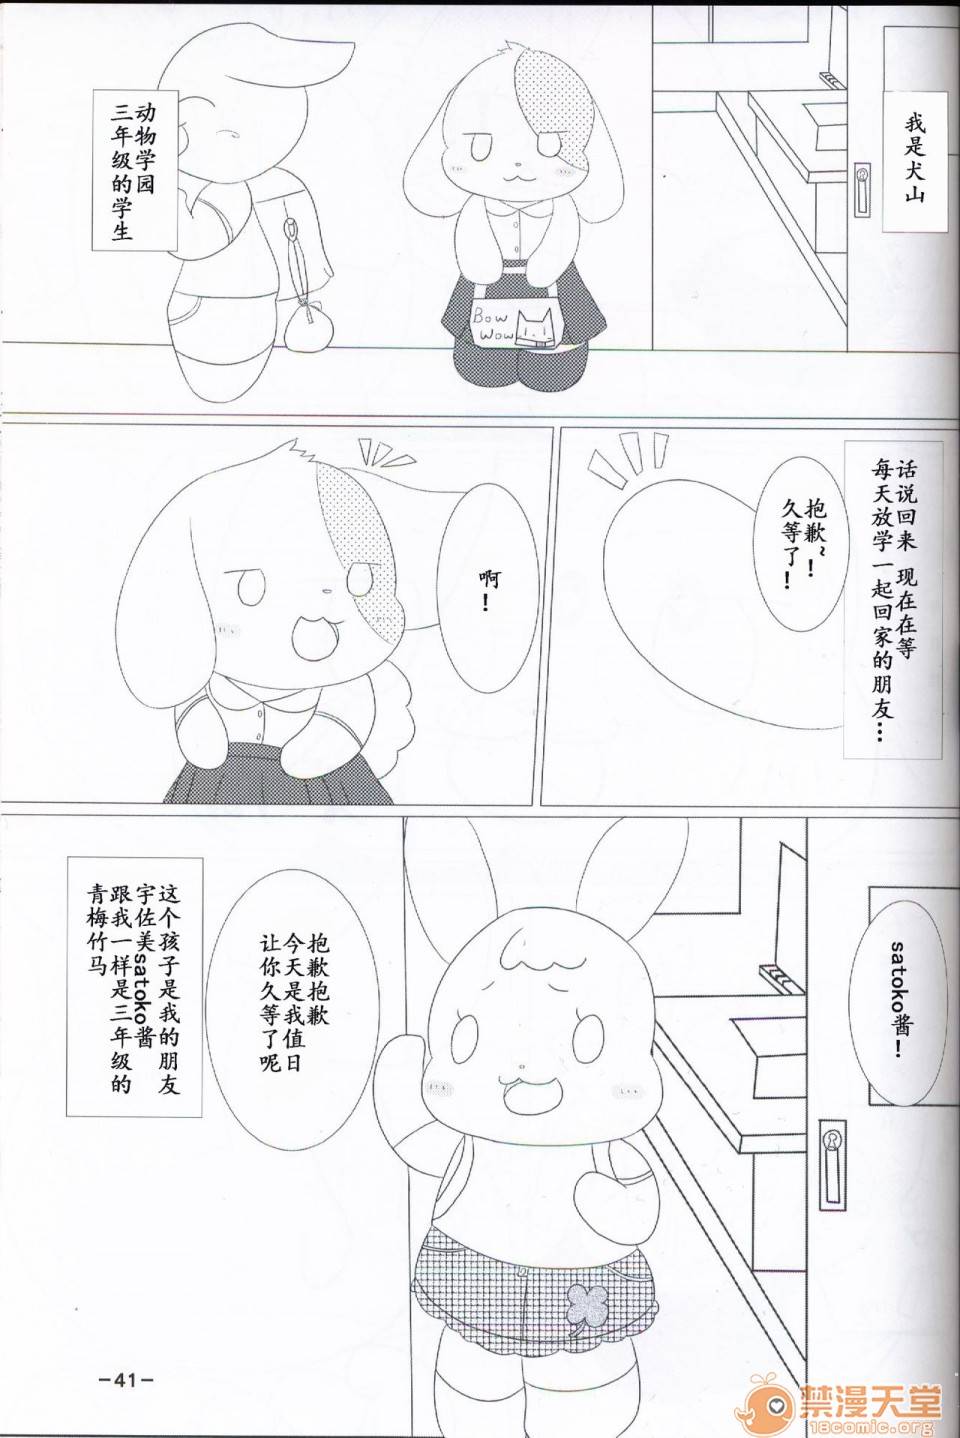 我是犬山
动物学园
三年级的学生
Bow
Wow
话说回来 现在在等
每天放学一起回家的朋友…
抱歉~!
久等了!
啊!
satoko酱!
抱歉抱歉
今天是我值日
让你久等了呢
这个孩子是我的朋友
宇佐美satoko酱
跟我一样是三年级的
青梅竹马
-41-
禁漫天堂
18comic.org